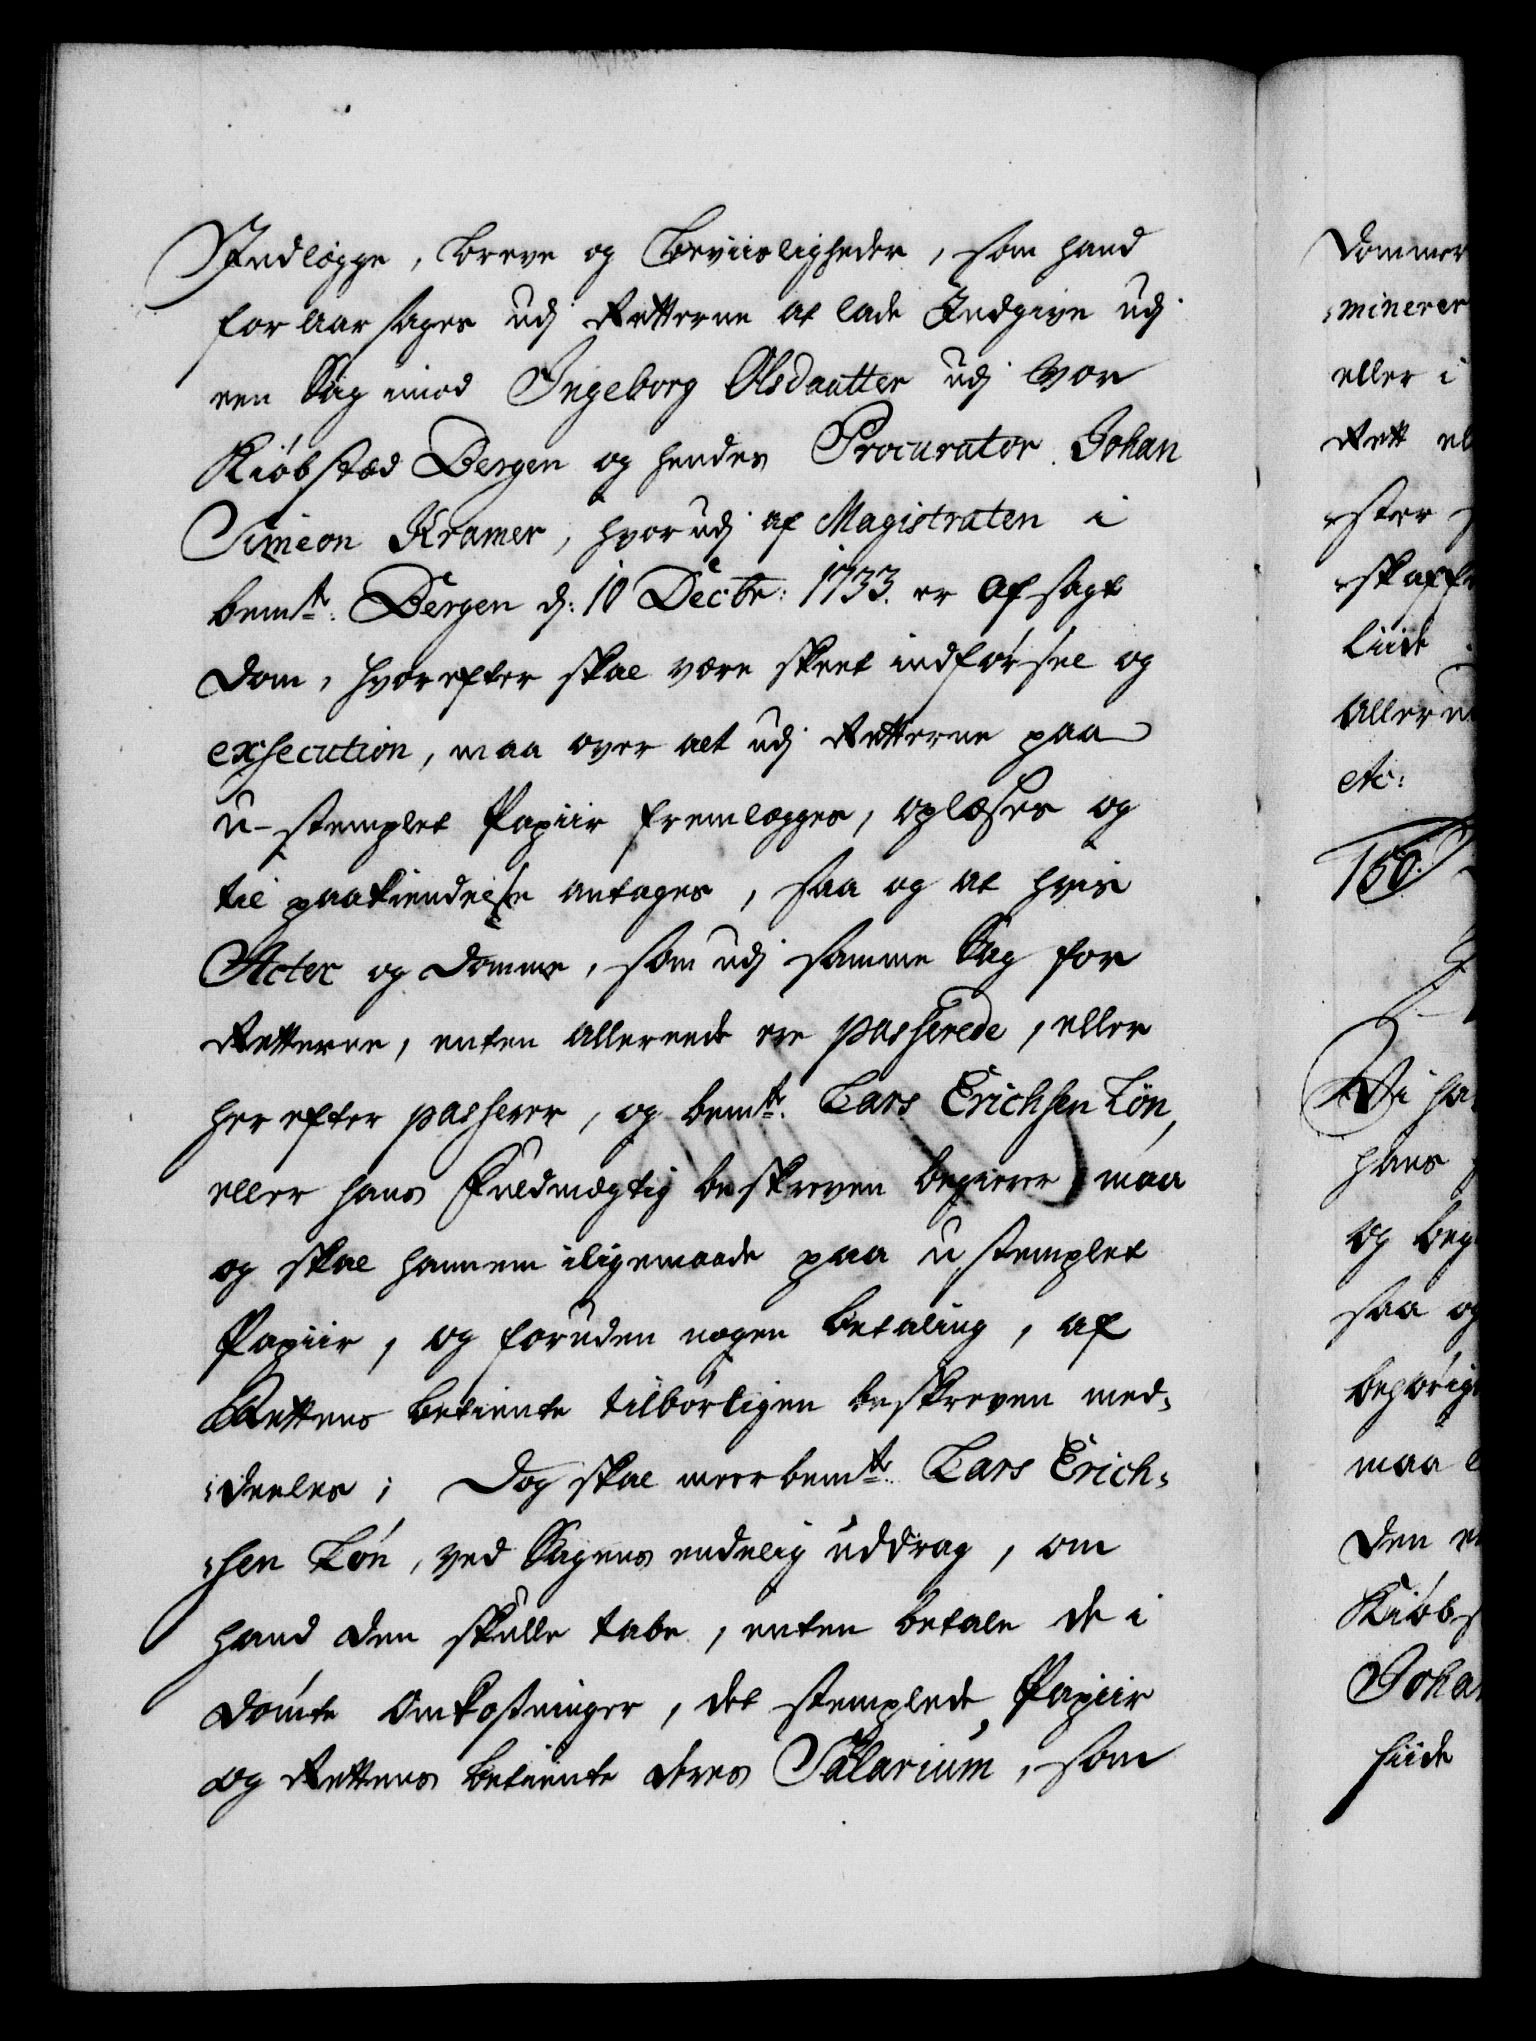 Indlægge, Breve og Beviisligheder, som hand
foraarsages udj Retterne at lade Indgive udj
een Sag imod Ingeborg Olsdaatter udj Vor
Kiöbstæd Bergen og hendes Procurator Johan
Simeon Kramer, hvorudj af Magistraten i
bemte: Bergen d: 10 Decbr: 1733. er afsagt
Dom, hvorefter skal være skeet indförsel og
exsecution, maa over alt udj Retterne paa
u-stemplet Papiir fremlægges, oplæses og
til paakiendelse antages, saa og at hvis
Acter og Domme, som udj samme Sag for
Retterne, enten allereede ere passerede, eller
herefter passerer, og bemte: Lars Erichsen Lön,
eller hans Fuldmægtig beskreven begierer, maa
og skal hannem iligemaade paa ustemplet
Papiir, og foruden nogen betaling, af
Rettens betiente tilbörligen beskreven med-
deeles; Dog skal meerbemte: Lars Erich-
sen Lön, ved Sagens endelig uddrag, om
hand den skulle tabe, enten betale de i
Dömte Omkostninger, det stemplede Papiir
og Rettens betiente deres Salarium, som
Dommer
minerer
eller i
Rett
ster
skaff
liide
aller
etc:
160.
Vi ha
hans
og beg
saa og
behörig
maa
den
Kiöbs
Johan
siide